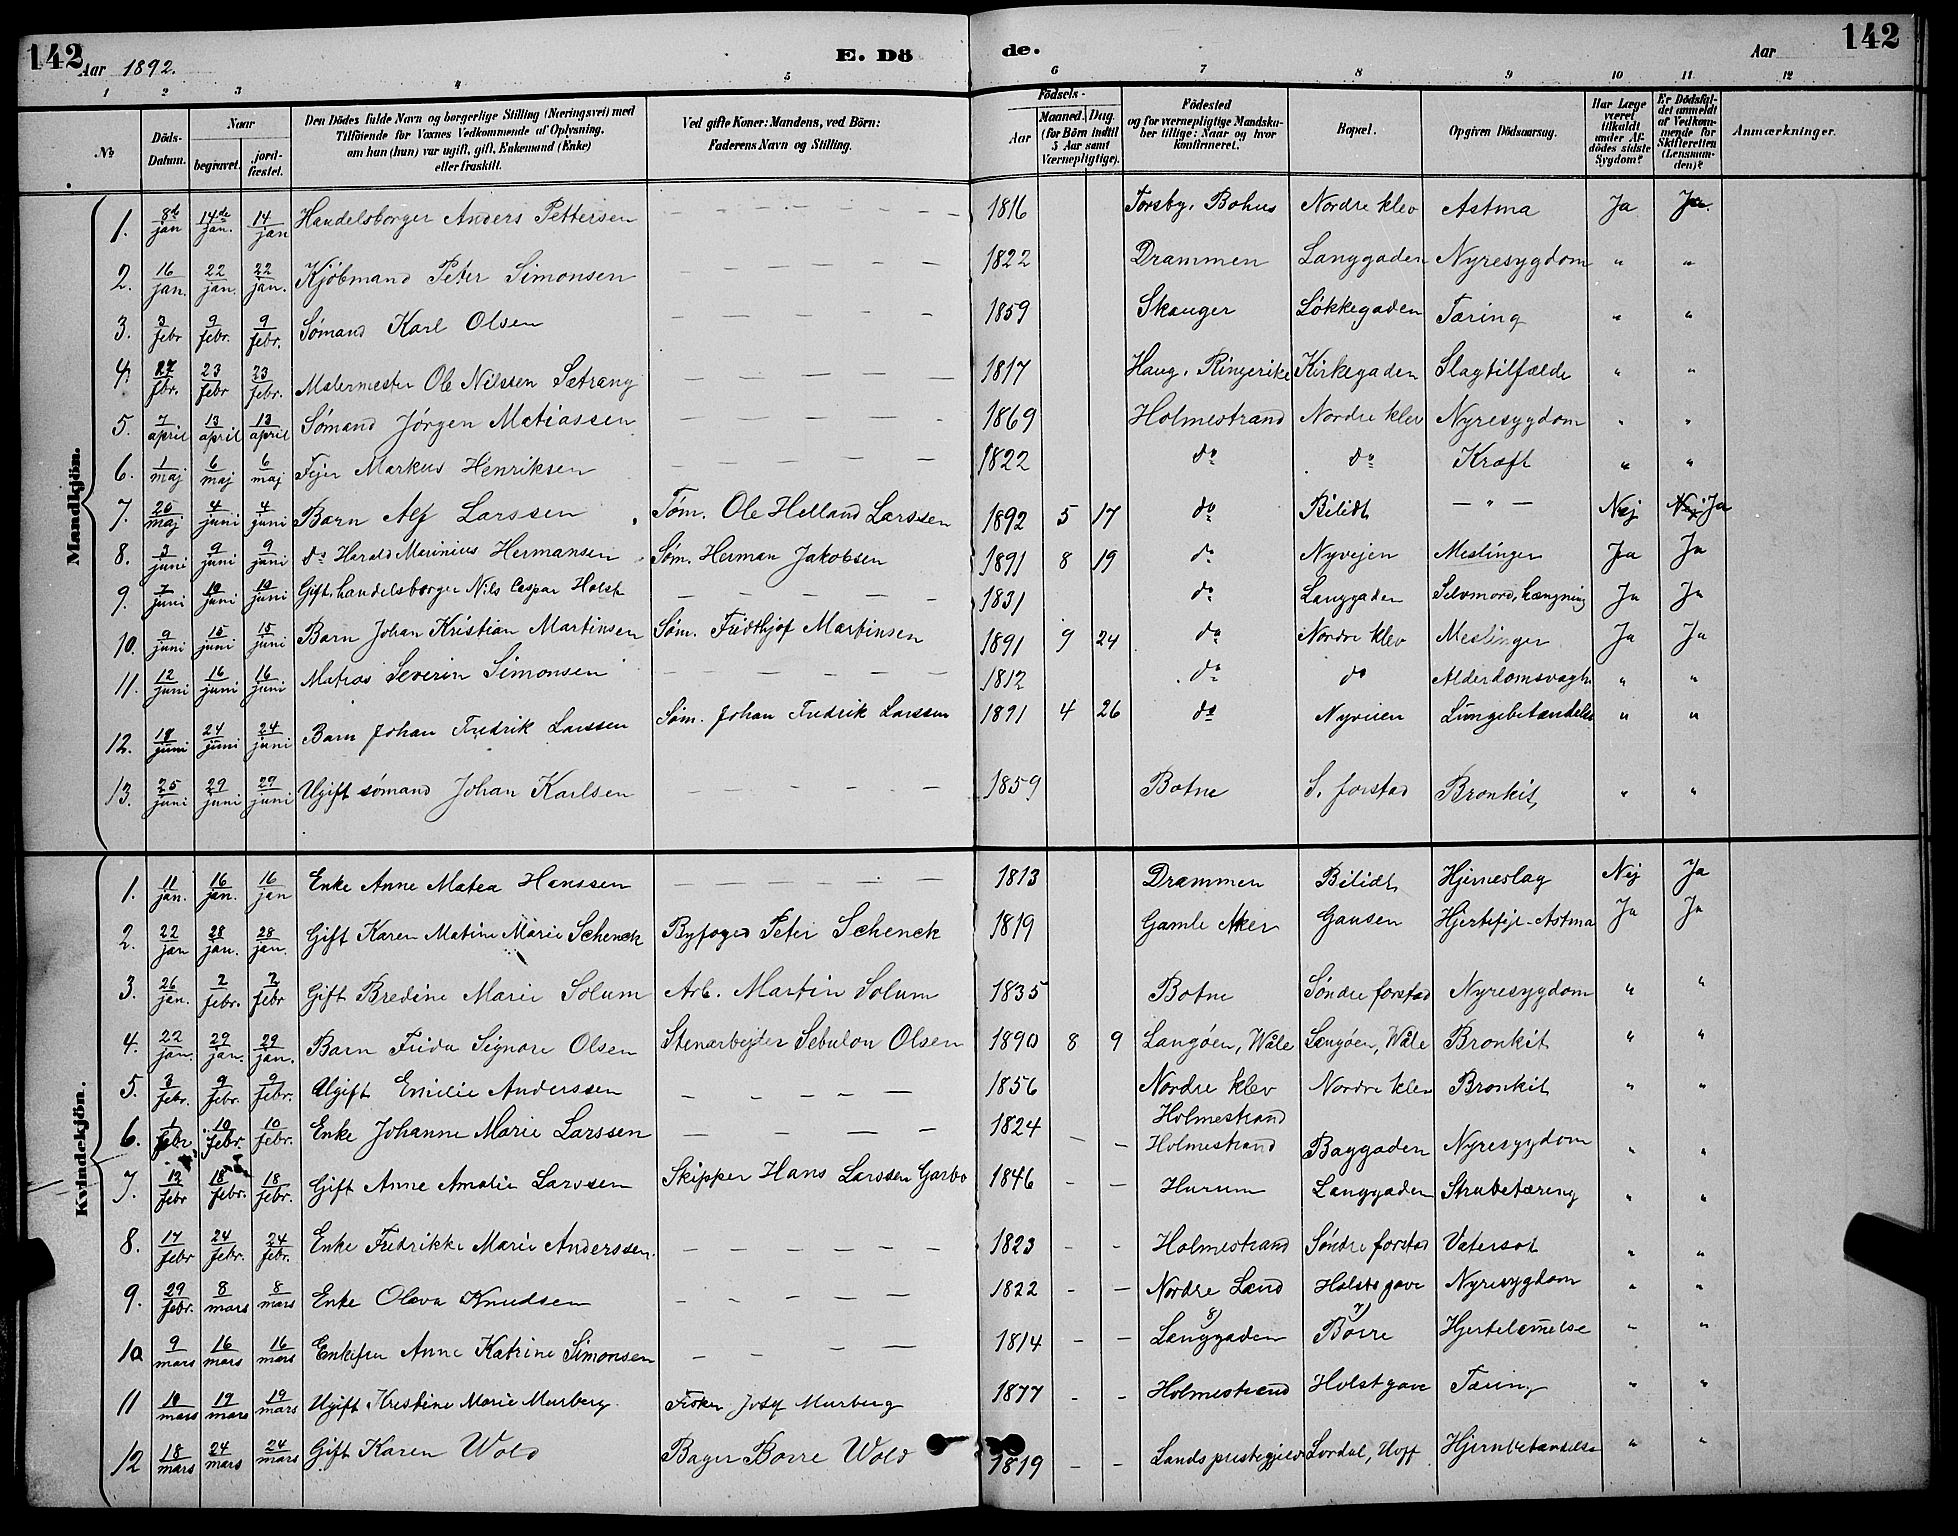 142 Aar 1892. E. Dö de. Aar 142
1 2 3 4 5 6 7 8 9 10 11 12
No
Döds-Datum.
Naar
begravet.
jord-fæstet.
Den Dödes fulde Navn og borgerlige Stilling (Næringsvei) med
Tilföiende for Voxnes Vedkommende af Oplysning,
om han (hun) var ugift, gift, Enkemand (Enke)
eller fraskilt.
Ved gifte Koner: Mandens, ved Börn:
Faderens Navn og Stilling.
Födsels-
Aar
Maaned. Dag.
(for Börn indtil
5 Aar samt
Værnepligtige).
Födested
og for værnepligtige Mandska-
ber tillige: Naar og hvor
konfirmeret.
Bopæl.
Opgiven Dödsaarsag.
Har Læge
været
tilkaldt
under Af-
dödes sidste
Sygdom?
Er Dödsfal-
det anmeldt
af Vedkom-
mende for
Skifteretten
(Lensman-
den)?
Anmærkninger.
Mandkjön.
1. 8de jan 14de jan. 14 jan Handelsborger Anders Pettersen — 1816 Torsby, Bohus Nordre klev Astma Ja Ja
2. 16 jan. 22 jan. 22 jan. Kjöbmand Peter Simonsen — 1822 Drammen Langgaden Nyresygdom " "
3. 3 febr 9 febr. 9 febr. Sømand Karl Olsen — 1859 Skauger Løkkegaden Tæring " "
4. febr. 23 febr 23 febr. Malermester Ole Nilssen Sætrang — 1817 Haug, Ringerike Kirkegaden Slagtilfælde " "
5. 7 april 13 april 13 april Sømand Jørgen Matiassen — 1869 Holmestrand Nordre klev Nyresygdom " "
6. 1 maj 6 maj 6 maj Fejer Markus Henriksen — 1822 do do Kræft " "
7. 25 maj 4 juni 4 juni Barn Alf Larssen Tøm. Ole Helland Larssen 1892 5 17 do Bilidt — " — Nej Nej Ja
8. juni 9 juni 9 juni do Harald Marinius Hermansen Søm. Herman Jakobsen 1891 8 19 do Nyvejen Meslinger Ja Ja
9. 7 juni 10 juni 10 juni Gift, handelsborger Nils Caspar Holst — 1831 do Langgaden Selvmord, hængning Ja Ja
10. 9 juni 15 juni 15 juni Barn Johan Kristian Martinsen Søm. Fridthjof Martinsen 1891 9 24 do Nordre klev Meslinger Ja Ja
11. 12 juni 16 juni 16 juni Matros Severin Simonsen — 1812 do do Alderdomsvagh. " "
12. 18 juni 24 juni 24 juni Barn Johan Fredrik Larssen Søm. Johan Fredrik Larssen 1891 4 26 do Nyveien Lungebetændelse " "
13. 25 juni 29 juni 29 juni Ugift sømand Johan Karlsen — 1859 Botne S. forstad Bronkit, " "
Kvindekjön.
1. 11 jan. 16 jan. 16 jan Enke Anne Matea Hanssen — 1813 Drammen Bilidt Hjerneslag Nej Ja
2. 22 jan 28 jan. 28 jan. Gift Karen Matine Marie Schenck Byfoged Peter Schenck 1819 Gamle Aker Gausen Hjertefejl-Astma Ja Ja
3. 26 jan. 2 febr. 2 febr Gift Bredine Marie Solum Arb. Martin Solum 1835 Botne Søndre forstad Nyresygdom " "
4. 22 jan. 29 jan. 29 jan. Barn Frida Signore Olsen Stenarbejder Sebulon Olsen 1890 8 9 Langøen, Wåle Langøen, Wåle Bronkit " "
5. 3 febr. 9 febr. 9 febr. Ugift Emilie Anderssen — 1856 Nordre klev Holmestrand Nordre klev Bronkit " "
6. 1 febr 10 febr. 10 febr. Enke Johanne Marie Larssen — 1824 — — Holmestrand Baggaden Nyresygdom " "
7. 12 febr 18 febr. 18 febr. Gift Anne Amalie Larssen Skipper Hans Larssen Garbo 1846 - — Hurum Langgaden Strubetæring " "
8. 17 febr 24 febr. 24 febr. Enke Fredrikke Marie Anderssen. — 1823 - - Holmestrand Søndre forstad Vatersot " "
9. 29 febr. 8 mars 8 mars Enke Olava Knudsen — 1822 - — Nordre Land Holsts gave Nyresygdom " "
10 9 mars 16 mars 16 mars Enkefru Anne Katrine Simonsen — 1814 - — 8) Langgaden 7) Borre Hjertelammelse " "
11 10 mars 19 mars 19 mars Ugift Kristine Marie Murberg. Fisker Josef Murberg 1877 - - Holmestrand Holst gave Tæring " "
12 18 mars 24 mars 24 mars Gift Karen Wold Bager Borre Wold 1819 - - Lands prestegjeld Lordal, Hoff Hjernebetændelse " "